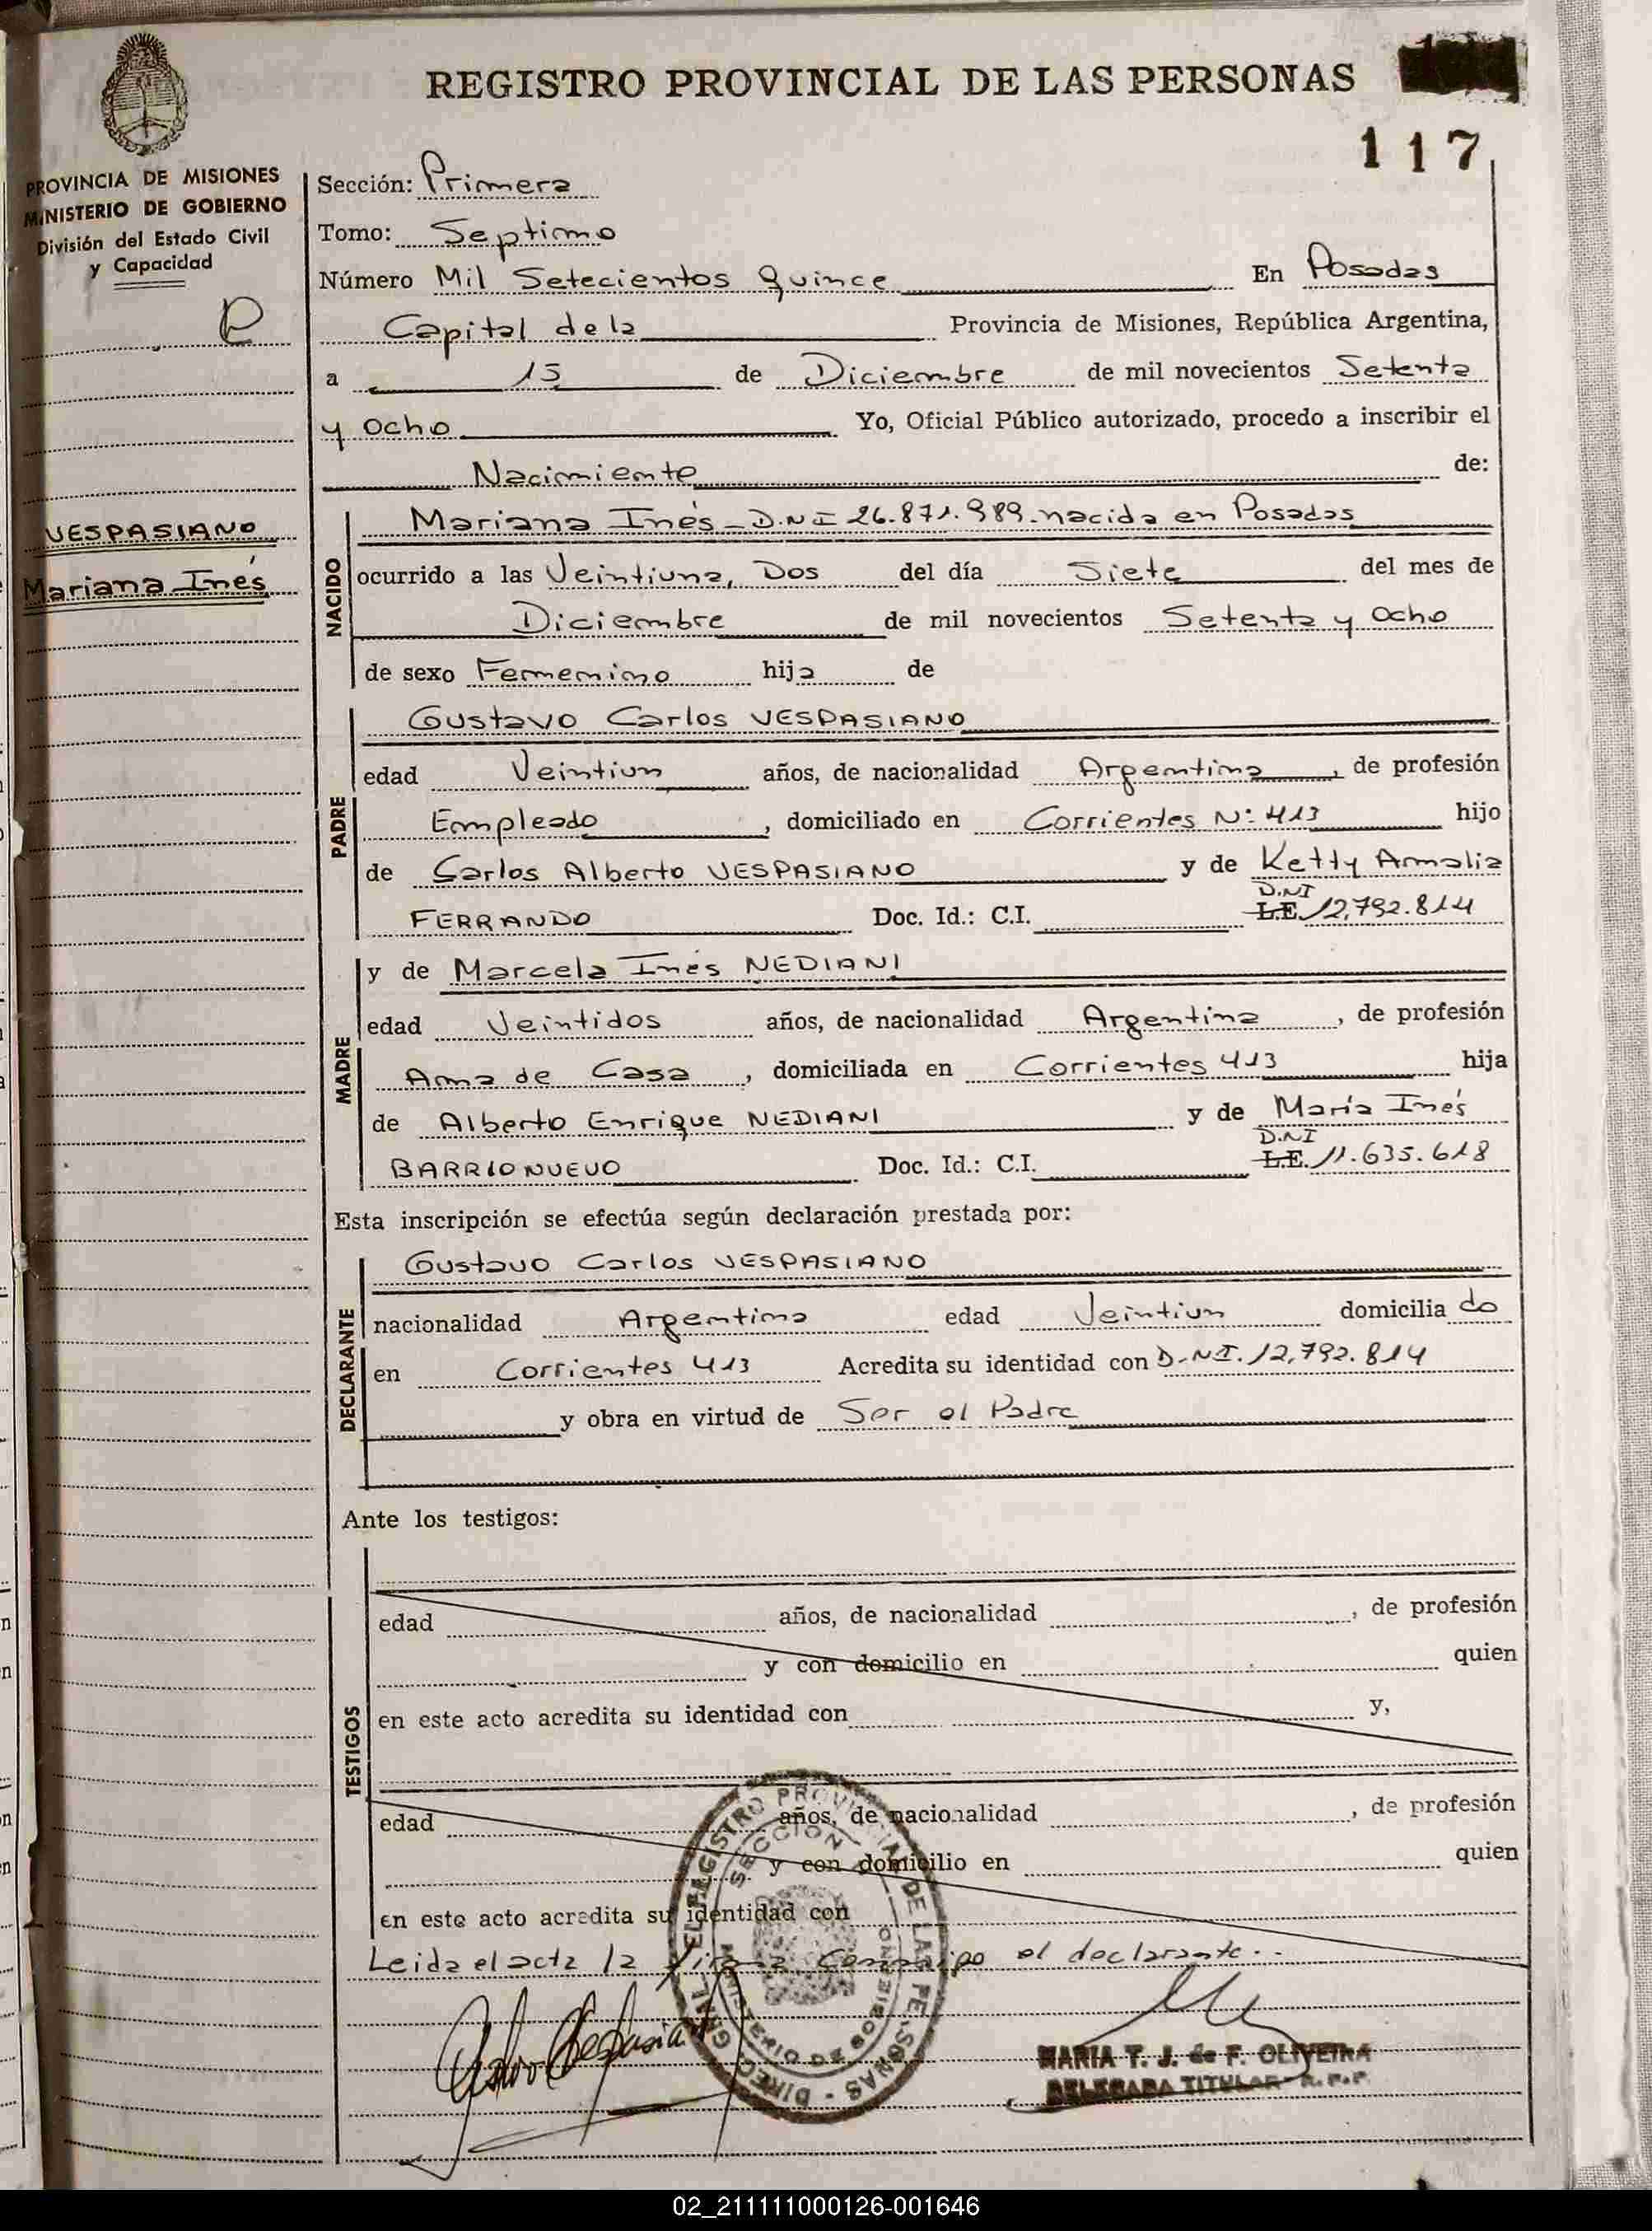 REGISTRO PROVINCIAL DE LAS PERSONAS
117
PROVINCIA DE MISIONES
MINISTERIO DE GOBIERNO
División del Estado Civil
y Capacidad
VESPASIANO
Mariana Inés
Sección: Primera
Tomo: Septimo
Número Mil Setecientos Quince En Posadas
Capital de la Provincia de Misiones, República Argentina,
a 15 de Diciembre de mil novecientos Setenta
y Ocho Yo, Oficial Público autorizado, procedo a inscribir el
Nacimiento de:
NACIDO
Mariana Inés - D.N.I 26.871.989 - nacida en Posadas
ocurrido a las Veintiuna, Dos del día Siete del mes de
Diciembre de mil novecientos Setenta y Ocho
de sexo Femenino hija de
PADRE
Gustavo Carlos VESPASIANO
edad Veintiun años, de nacionalidad Argentina, de profesión
Empleado, domiciliado en Corrientes N: 413 hijo
de Carlos Alberto VESPASIANO y de Ketty Amalia
FERRANDO Doc. Id.: C.I. L.E. D.NI 12,792.814
MADRE
y de Marcela Inés NEDIANI
edad Veintidos años, de nacionalidad Argentina, de profesión
Ama de Casa, domiciliada en Corrientes 413 hija
de Alberto Enrique NEDIANI y de María Inés
BARRIONUEVO Doc. Id.: C.I. L.E. D.NI 11.635.618
Esta inscripción se efectúa según declaración prestada por:
DECLARANTE
Gustavo Carlos VESPASIANO
nacionalidad Argentina edad Veintiun domicilia do
en Corrientes 413 Acredita su identidad con D.NI. 12,792.814
y obra en virtud de Ser el Padre
Ante los testigos:
TESTIGOS
edad años, de nacionalidad, de profesión
y con domicilio en quien
en este acto acredita su identidad con y,
edad años, de nacionalidad, de profesión
y con domicilio en quien
en este acto acredita su identidad con
Leida el acta la firma conmigo el declarante.
DIREC. GRAL. DEL REGISTRO PROVINCIAL DE LAS PERSONAS
SECCION
MINISTERIO DE GOBIERNO
MARIA T. J. de F. OLIVEIRA
DELEGADA TITULAR - R.P.P.
02_211111000126-001646